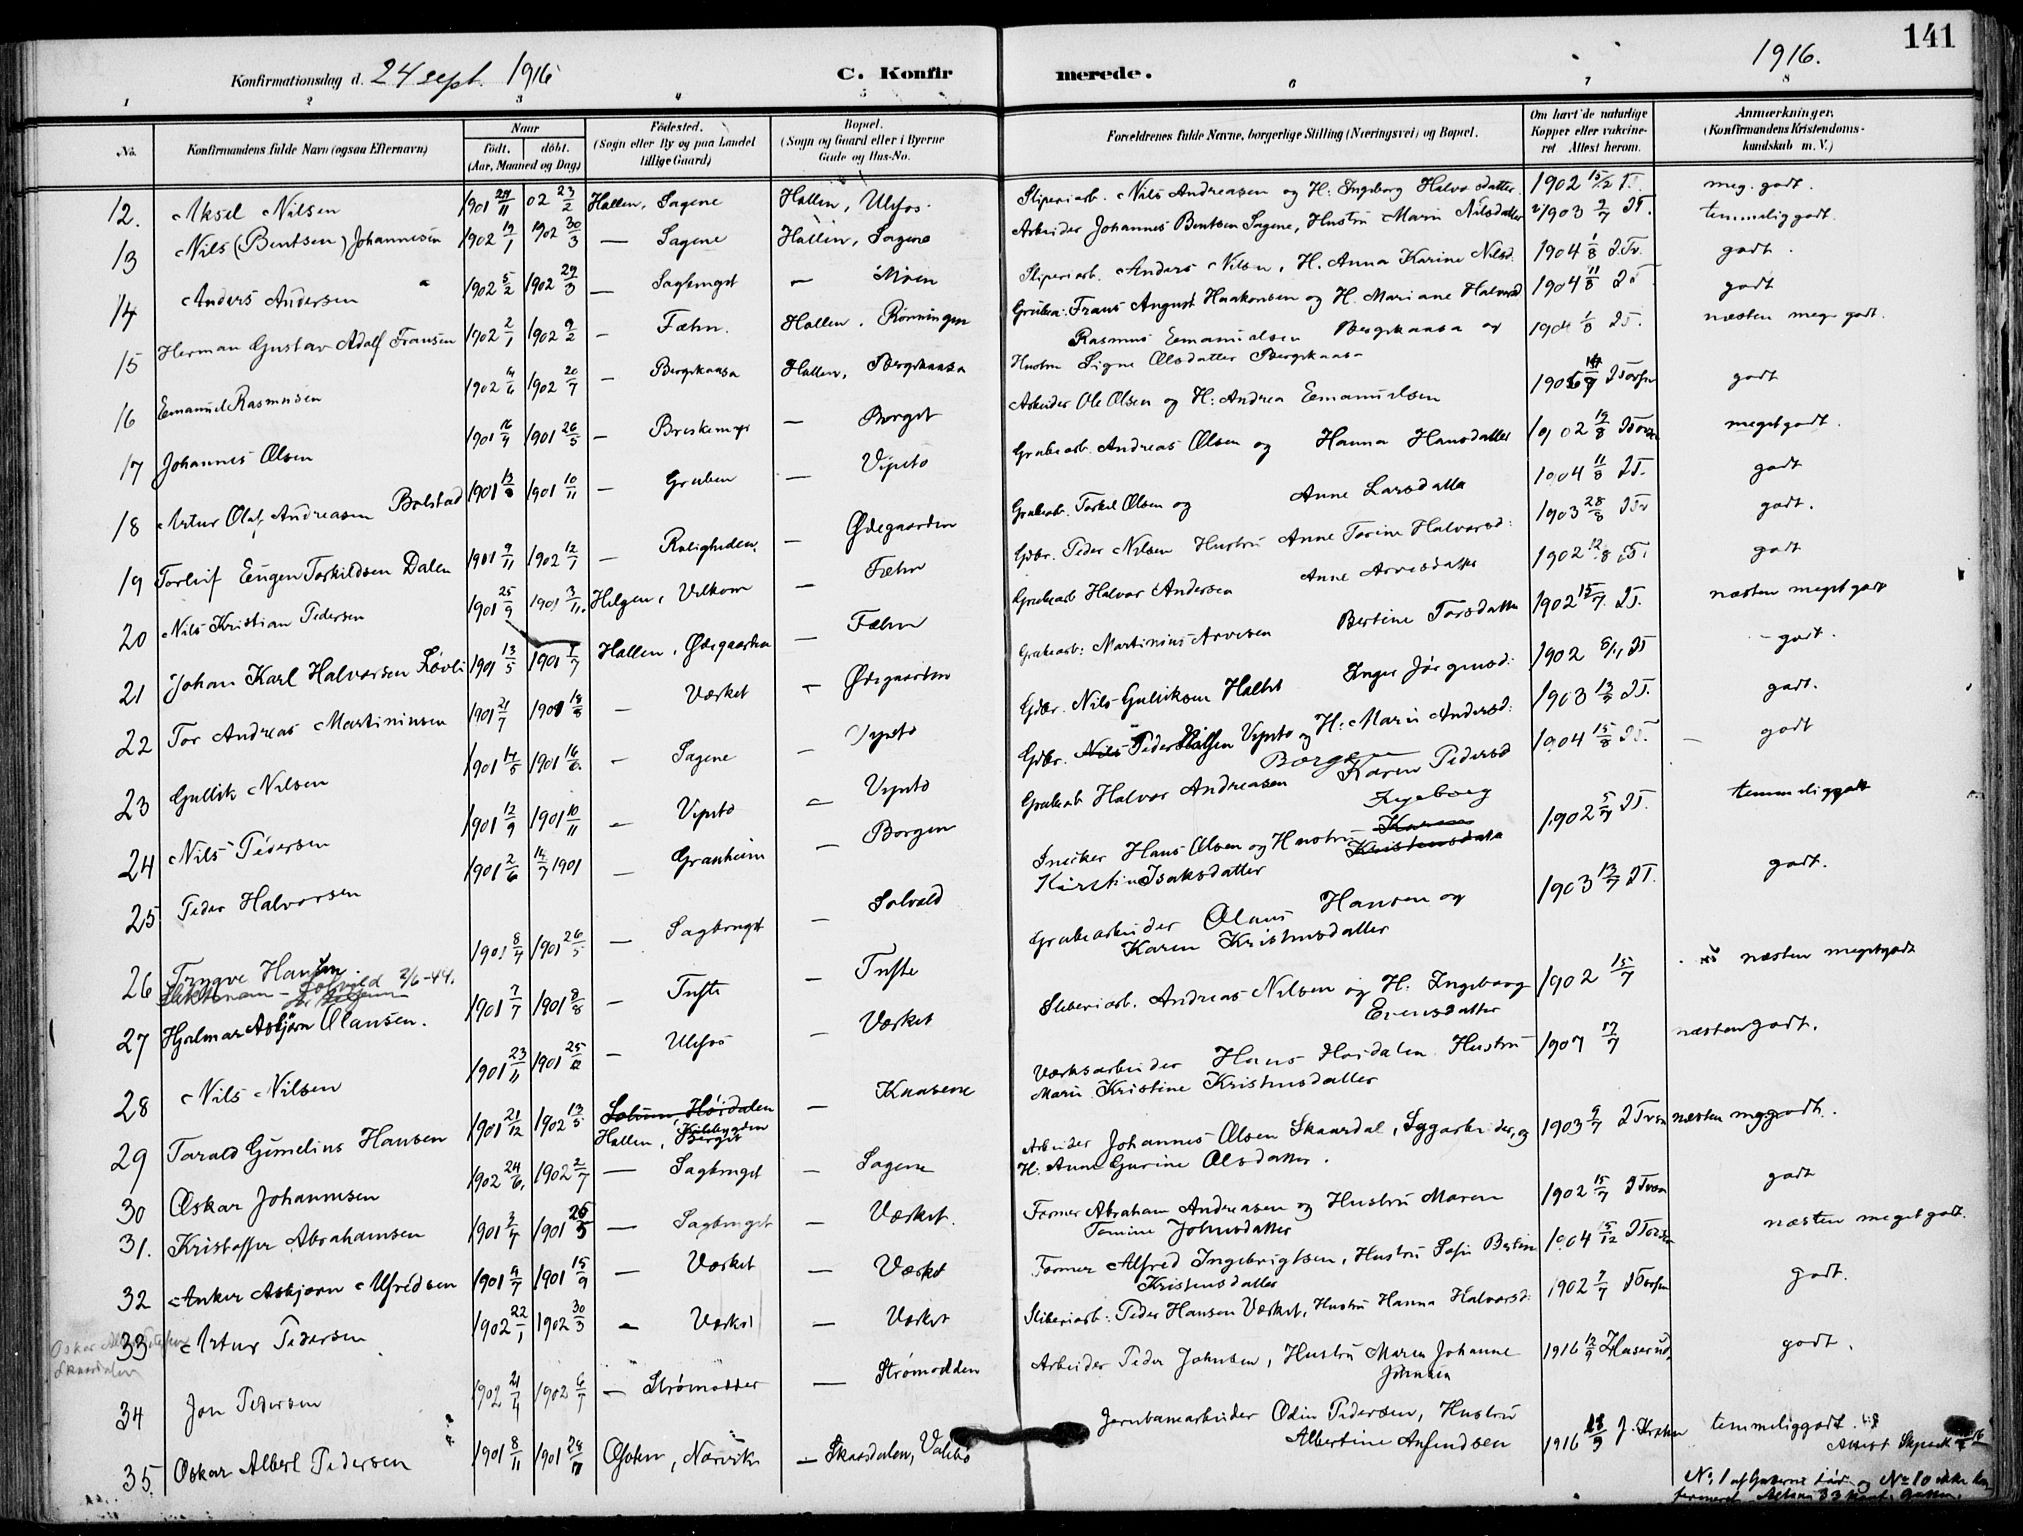 141
Konfirmationsdag d. 24 sept. 1916
C. Konfirmerede.
1916.
1 2 3 4 5 6 7 8
No. Konfirmandens fulde Navn (ogsaa Efternavn) Naar födt. döbt. (Aar, Maaned og Dag) Födested. (Sogn eller By og paa Landet tillige Gaard) Bopæl. (Sogn og Gaard eller i Byerne Gade og Hus-No. Forældrenes fulde Navne, borgerlige Stilling (Næringsvei) og Bopæl. Om havt de naturlige Kopper eller vakcineret Attest herom. Anmærkninger. (Konfirmandens Kristendomskundskab m. V.)
12. Aksel Nilsen 1901 02 23/2 Hollen, Sagene Hollen, Ulefos. Sliperiarb. Nils Andreasen og H. Ingeborg Halvorsdatter. 1902 meg. godt.
13 Nils (Bentsen) Johannesen 1902 19/1 1902 30/3 — Sagene Hollen, Sagene Arbeider Johannes Bentsen Sagene, Hustru Maria Nilsdatter 1903 temmelig godt.
14 Anders Andersen 1902 5/2 1902 29/3 — Sagbruget — Moen Sliperiarb. Anders Nilsen, H. Anna Karine Nilsd. 1904 1/8 godt.
15 Herman Gustav Adolf Fransen 1902 2/1 1902 9/2 — Fæhn. Hollen, Rönningen Frans August Haakonsen og H. Mariane Halvorsd 1904 11/8 godt
16 Emanuel Rasmusen 1902 1902 20/7 — Bergskaasa Hollen, Bergskaasa Rasmus Emanuelsen Bergskaasa og Hustru Signe Olsdatter Bergskaasa 1904 1/8 næsten meg. godt.
17 Johannes Olsen 1901 16/4 1901 26/5 — — Borget Arbeider Ole Olsen og H: Andrea Emanuelsen godt
18 Artur Olaf Andreasen Bolstad 1901 1901 10/11 — Gruben — Vipeto Grubearb. Andreas Olsen og Hanna Hansdatter 1902 19/8 meget godt.
19 Torleif Eugen Torkildsen Dalen 1901 9/11 1902 12/7 — Roligheden. — Ødegaarden Grubearb. Torkel Olsen og Anne Larsdatter 1904 11/8 godt
20 Nils Kristian Pedersen 1901 25/9 1901 3/11. Helgen, Velkom — Fæhn Gdbr. Peder Nilsen Hustru Anne Torine Halvorsd: 1903 28/8 godt.
21 Johan Karl Halvorsen Løvli 1901 13/5 1901 Hollen, Ødegaarden — Fæhn Grubearb Halvor Andersen Anne Arvesdatter 1902 godt
22 Tor Andreas Martinusen 1901 21/7 1901 18/8 — Værket — Ødegaarden Grubearb: Martinius Arvesen Bertine Torsdatter 1902 15/7. næsten meget godt
23 Gullik Nilsen 1901 14/5 1901 16/6. — Sagene — Vipeto Gdbr. Nils Gulliksen Holtet Inger Jörgensd: 1902 godt.
24 Nils Pedersen 1901 12/9 1901 10/11 — Vipeto — Vipeto Gdbr. Nils Peder Nilsen Vipeto og H: Maria Andersd: 1903 godt.
25 Peder Halvorsen 1901 2/6 14/7 1901 — Granheim — Borgen Grubearb Halvor Andreasen Borgen Karen Pedersd 1904 15/8 godt
26 Trygve Hansen. 2/6-44. 1901 8/4 1901 26/5 — Sagbruget — Solvold Snekker Hans Olsen og Hustru Ingeborg Karen Kristensdatter Kirstine Isaksdatter 1902 5/7 temmelig godt
27 Hjalmar Asbjørn Olausen. 1901 7/7 1901 8/8 — Tufte — Tufte Grubearbeider Olaus Hansen og Karen Kristensdatter 1903 13/7 godt.
28 Nils Nilsen 1901 23/11 1901 — Ulefos — Værket Sliberiarb. Andreas Nilsen og H. Ingeborg Evensdatter 1902 15/7 næsten meget godt
29 Tarald Gunelius Hansen 1901 21/12 1902 13/5 Solum, Hoisdalen Hollen, Kaasene Værksarbeider Hans Hoisdalen Hustru Maria Kristine Kristensdatter 1907 17/7 næsten godt.
30 Oskar Johannesen 1902 24/6. 1902 2/7 — Sagbruget — Sagene Arbeider Johannes Olsen Skaardal, Sagarbeider, og H. Anne Gurine Olsdatter. 1903 9/7 næsten meg. godt.
31. Kristoffer Abrahamsen 1901 1901 — Sagbruget — Værket. Former Abraham Andreasen og Hustru Maren Tomine Johnsdatter 1902 15/7 godt
32 Anker Asbjørn Alfredsen 1901 9/7 1901 15/9 — Værket — Værket Former Alfred Ingebrigtsen, Hustru Sofie Bertine Kristensdatter 1904 15/12 næsten meget godt.
33 Artur Pedersen 1902 22/1 1902 30/3 — Værket — Værket Sliberiarb: Peder Hansen Værket, Hustru Hanna Halvorsd: 1902 7/7 godt.
34 Jon Pedersen 1902 21/4 1902 6/7 — Strömodden — Strömodden Arbeider Peder Johnsen, Hustru Maren Johanne Johnsen 1916 12/9 godt.
35. Oskar Albert Pedersen 1901 8/11 1901 Ofoten, Narvik — Skaardalen, Valebø Jernbanearbeider Odin Pedersen, Hustru Albertine Arfindsen 1916 temmelig godt.
Skaardalen
No 1 af Guterne og No 10 ikke